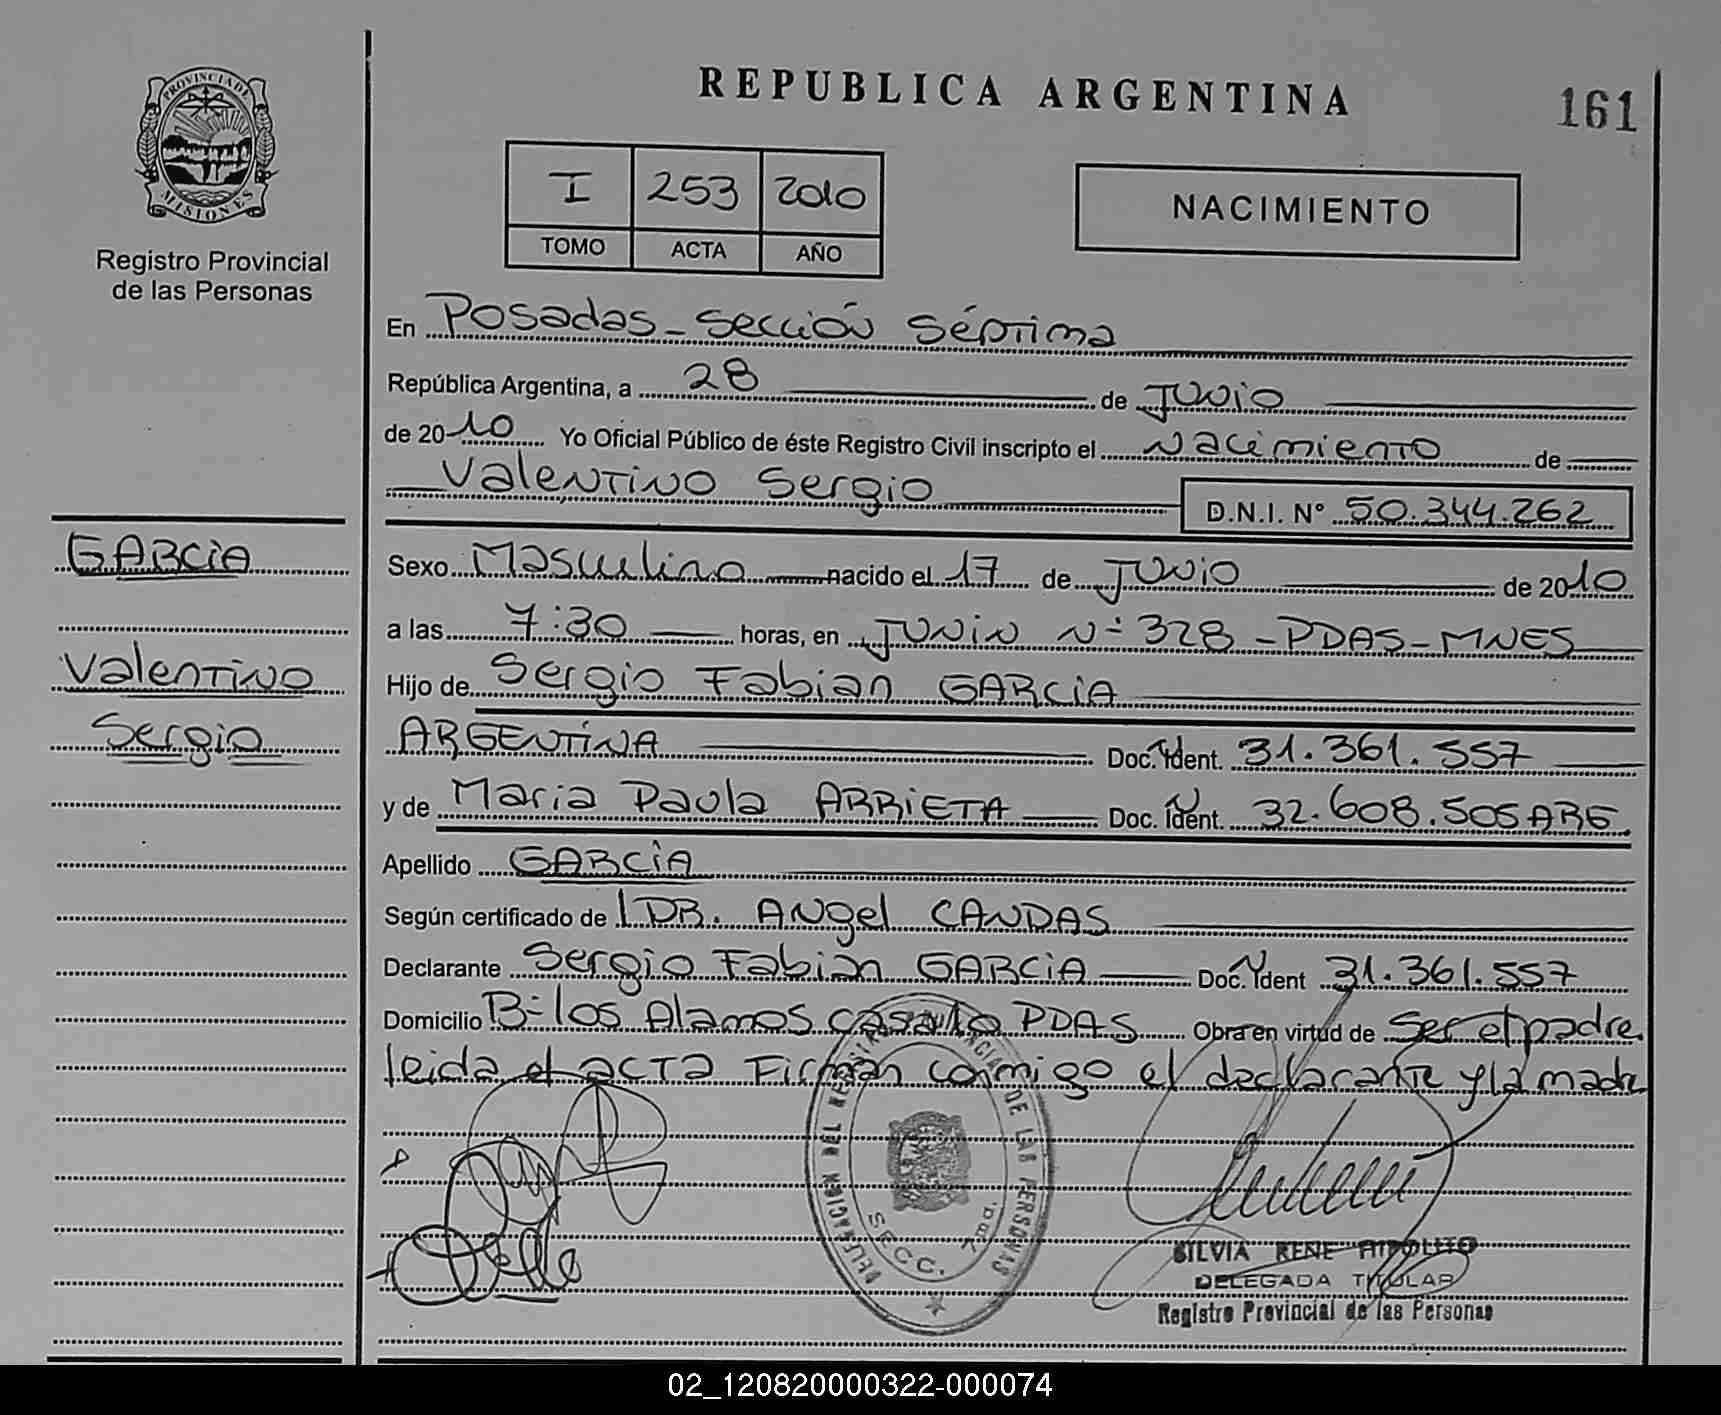 PROVINCIA DE
MISIONES
Registro Provincial
de las Personas
REPUBLICA ARGENTINA
161
I 253 2010
TOMO ACTA AÑO
NACIMIENTO
En Posadas - Sección Séptima
República Argentina, a 28 de Junio
de 2010 Yo Oficial Público de éste Registro Civil inscripto el Nacimiento de
Valentino Sergio D.N.I. N° 50.344.262
GARCIA
Valentino
Sergio
Sexo Masculino nacido el 17 de Junio de 2010
a las 7:30 horas, en Junin N° 328 - PDAS - MNES
Hijo de Sergio Fabian GARCIA
ARGENTINA Doc. Ident. 31.361.557
y de Maria Paula ARRIETA Doc. Ident. 32.608.505 ARG
Apellido GARCIA
Según certificado de DR. Angel CANDAS
Declarante Sergio Fabian GARCIA Doc. Ident 31.361.557
Domicilio B= los Alamos casa PDAS Obra en virtud de ser el padre.
leida el acta Firman conmigo el declarante y la madre
DELEGACION DEL REGISTRO PROVINCIAL DE LAS PERSONAS
SECC. 7ma.
SILVIA RENE HIPOLITO
DELEGADA TITULAR
Registro Provincial de las Personas
02_120820000322-000074